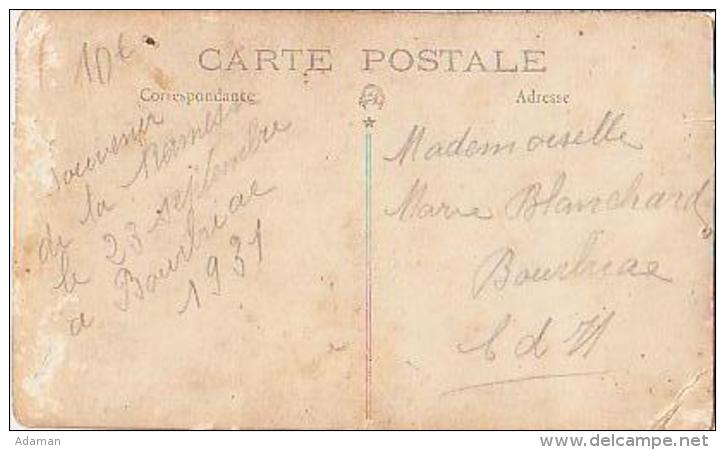 10€
CARTE POSTALE
Correspondance
Adresse
Souvenir
de la Kermesse
le 23 septembre
a Bourbriac
1931
Mademoiselle
Marie Blanchard
Bourbriac
C d N
Adaman
www.delcampe.net